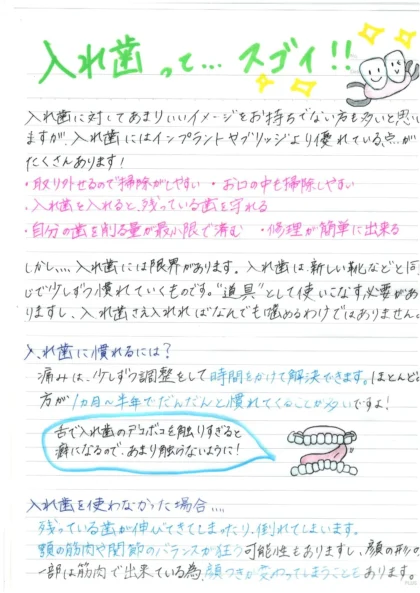 入れ歯って… スゴイ!!
入れ歯に対してあまりいいイメージをお持ちでない方も多いと思い
ますが、入れ歯にはインプラントやブリッジより優れている点が
たくさんあります!
・取り外せるので掃除がしやすい ・お口の中も掃除しやすい
・入れ歯を入れると、残っている歯を守れる
・自分の歯を削る量が最小限で済む ・修理が簡単に出来る
しかし…、入れ歯には限界があります。入れ歯は、新しい靴などと同
じで少しずつ慣れていくものです。"道具"として使いこなす必要があ
りますし、入れ歯さえ入れればなんでも噛めるわけではありません。
入れ歯に慣れるには?
痛みは、少しずつ調整をして時間をかけて解決できます。ほとんど
方が1ヵ月〜半年でだんだんと慣れてくることが多いですよ!
舌で入れ歯のデコボコを触りすぎると
癖になるので、あまり触らないように!
入れ歯を使わなかった場合…
残っている歯が伸びてきてしまったり、倒れてしまいます。
顎の筋肉や関節のバランスが狂う可能性もありますし、顔の形の
一部は筋肉で出来ている為、顔つきが変わってしまうこともあります。